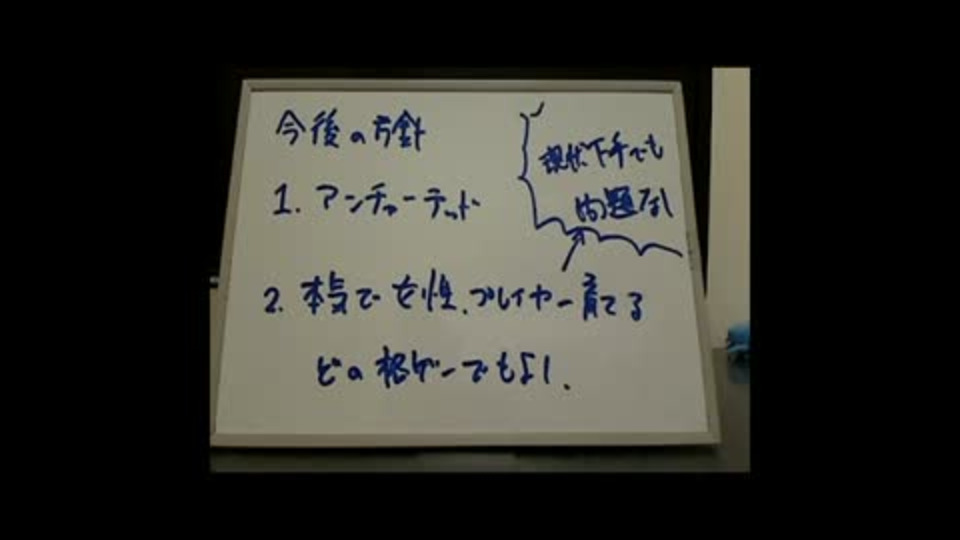 今後の方針
1. アンチャーテッド
現状下手でも
問題なし
2. 本気で女性プレイヤー育てる
どの格ゲーでもよし.